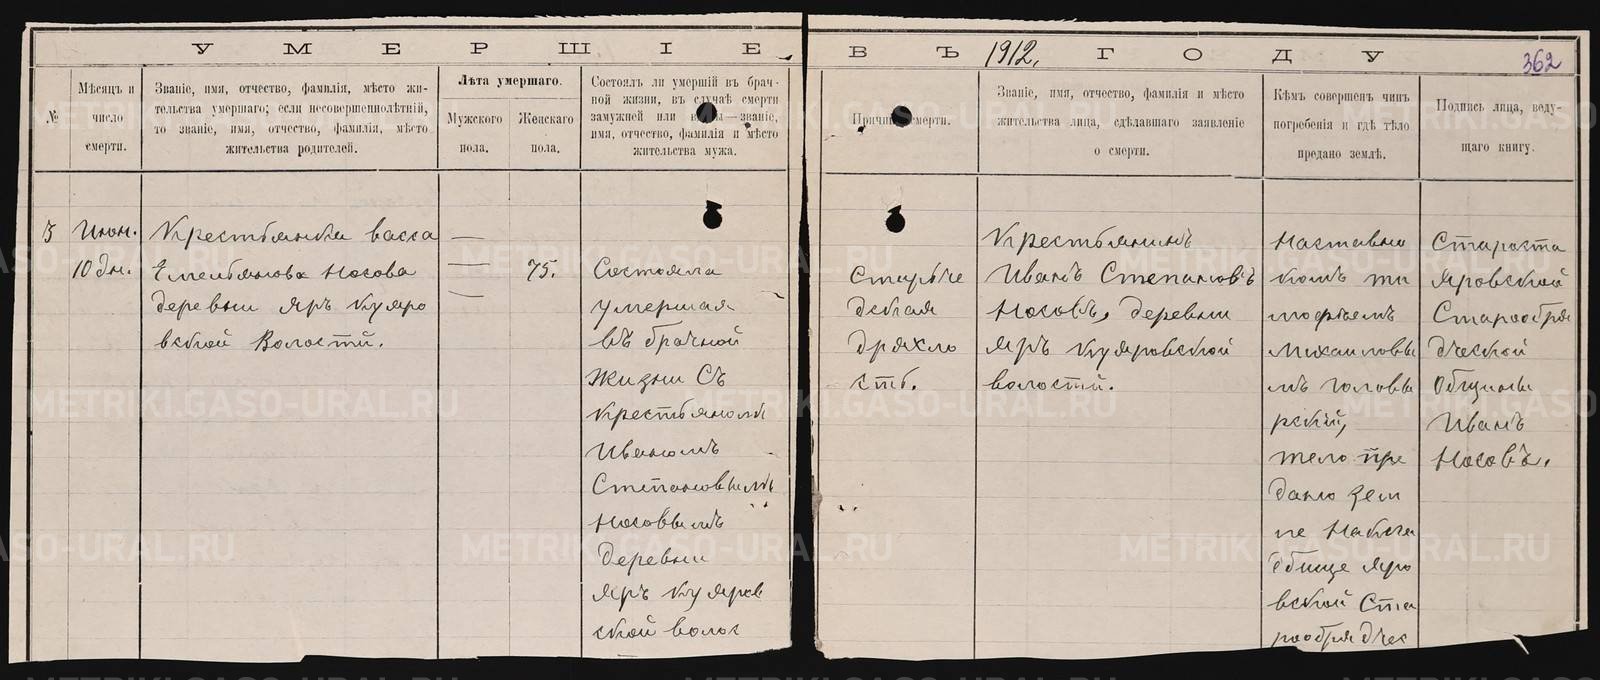 УМЕРШІЕ
ВЪ 1912. ГОДУ
362
№
Мѣсяц и
число
смерти.
Званіе, имя, отчество, фамилія, мѣсто жи-
тельства умершаго; если несовершеннолѣтній,
то званіе, имя, отчество, фамилія, мѣсто
жительства родителей.
Лѣта умершаго.
Мужского
пола.
Женскаго
пола.
Состоял ли умершій въ брач-
ной жизни, въ случаѣ смерти
замужней или —званіе,
имя, отчество, фамилія и мѣсто
жительства мужа.
смерти.
Званіе, имя, отчество, фамилія и мѣсто
жительства лица, сдѣлавшаго заявленіе
о смерти.
Кѣмъ совершенъ чинъ
погребенія и гдѣ тѣло
предано землѣ.
Подпись лица, веду-
щаго книгу.
5
Июн.
10 дн.
Крестьянка васса
Емельянова Носова
деревни яръ Куяро
вской Волости.
—
—
—
75.
Состояла
умершая
въ брачной
жизни Съ
Крестьяномъ
Иваномъ
Степановымъ
Носовымъ
деревни
яръ Куяров
ской волос
дряхло
сть.
Крестьянинъ
Иванъ Степановъ
Носовъ, деревни
яръ Куяровской
волости.
Наставни
комъ ти
мофѣемъ
Михаиловы
мъ головы
рский,
тело пре
дано зем
ле
яро
вской Ста
рообрядчес
Староста
яровской
Старообря
дческой
Общины
Иванъ
Носовъ.
METRIKI.GASO-URAL.RU